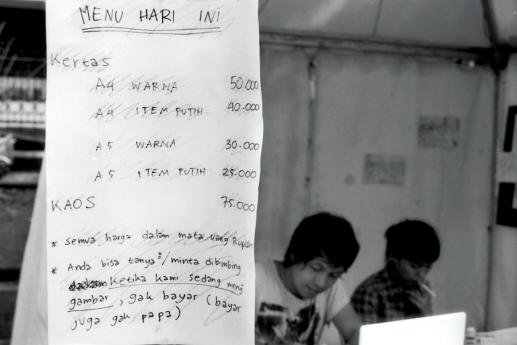 MENU HARI INI
Kertas
A4 WARNA 50.000
A4 ITEM PUTIH 40.000
A5 WARNA 30.000
A5 ITEM PUTIH 25.000
KAOS 75.000
* semua harga dalam mata uang Rupiah
* Anda bisa tanya²/minta dibimbing
ketika kami sedang meng
gambar, gak bayar (bayar
juga gak papa)